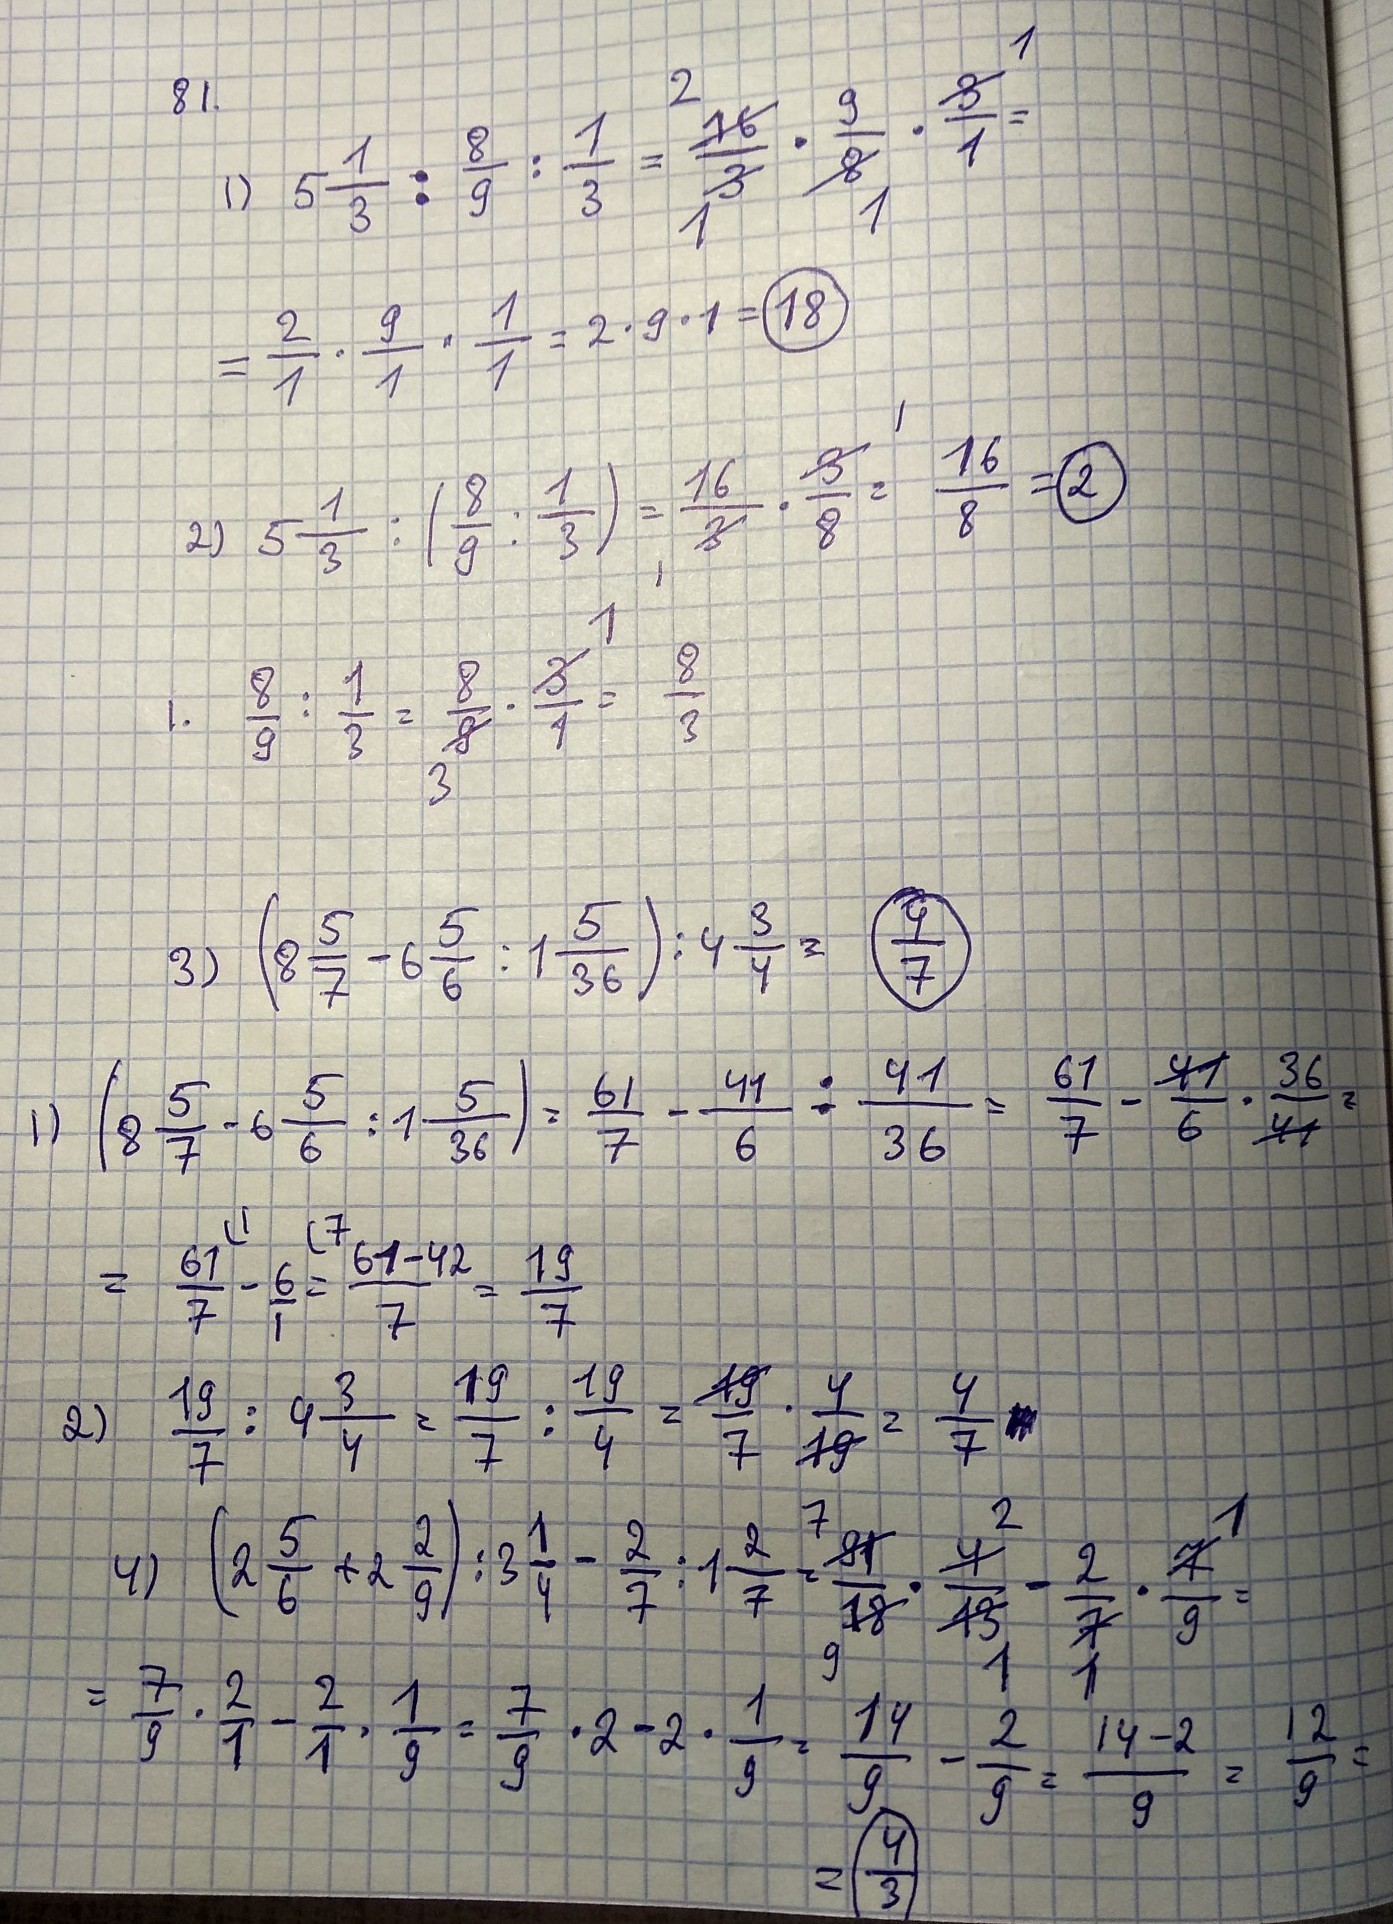 81.
1) 5 1/3 : 8/9 : 1/3 = 16/3 · 9/8 · 3/1 =
= 2/1 · 9/1 · 1/1 = 2 · 9 · 1 = 18
2) 5 1/3 : (8/9 : 1/3) = 16/3 · 3/8 = 16/8 = 2
1. 8/9 : 1/3 = 8/9 · 3/1 = 8/3
3) (8 5/7 - 6 5/6 : 1 5/36) : 4 3/4 = 4/7
1) (8 5/7 - 6 5/6 : 1 5/36) = 61/7 - 41/6 : 41/36 = 61/7 - 41/6 · 36/41 =
= 61/7 (1 - 6/1 (7 = 61-42/7 = 19/7
2) 19/7 : 4 3/4 = 19/7 : 19/4 = 19/7 · 4/19 = 4/7
4) (2 5/6 + 2 2/9) : 3 1/4 - 2/7 : 1 2/7 = 91/18 · 4/13 - 2/7 · 7/9 =
= 7/9 · 2/1 - 2/1 · 1/9 = 7/9 · 2 - 2 · 1/9 = 14/9 - 2/9 = 14-2/9 = 12/9 =
= 4/3